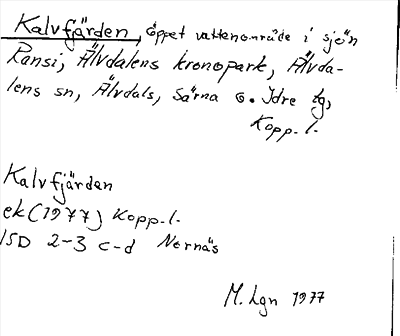 Kalvfjärden, öppet vattenområde i sjön
Ransi, Älvdalens kronopark, Älvda-
lens sn, Älvdals, Särna o. Idre tg,
Kopp. l.
Kalvfjärden
ek (1977) Kopp. l.
15D 2-3 c-d Nornäs
M. Lgn 1977